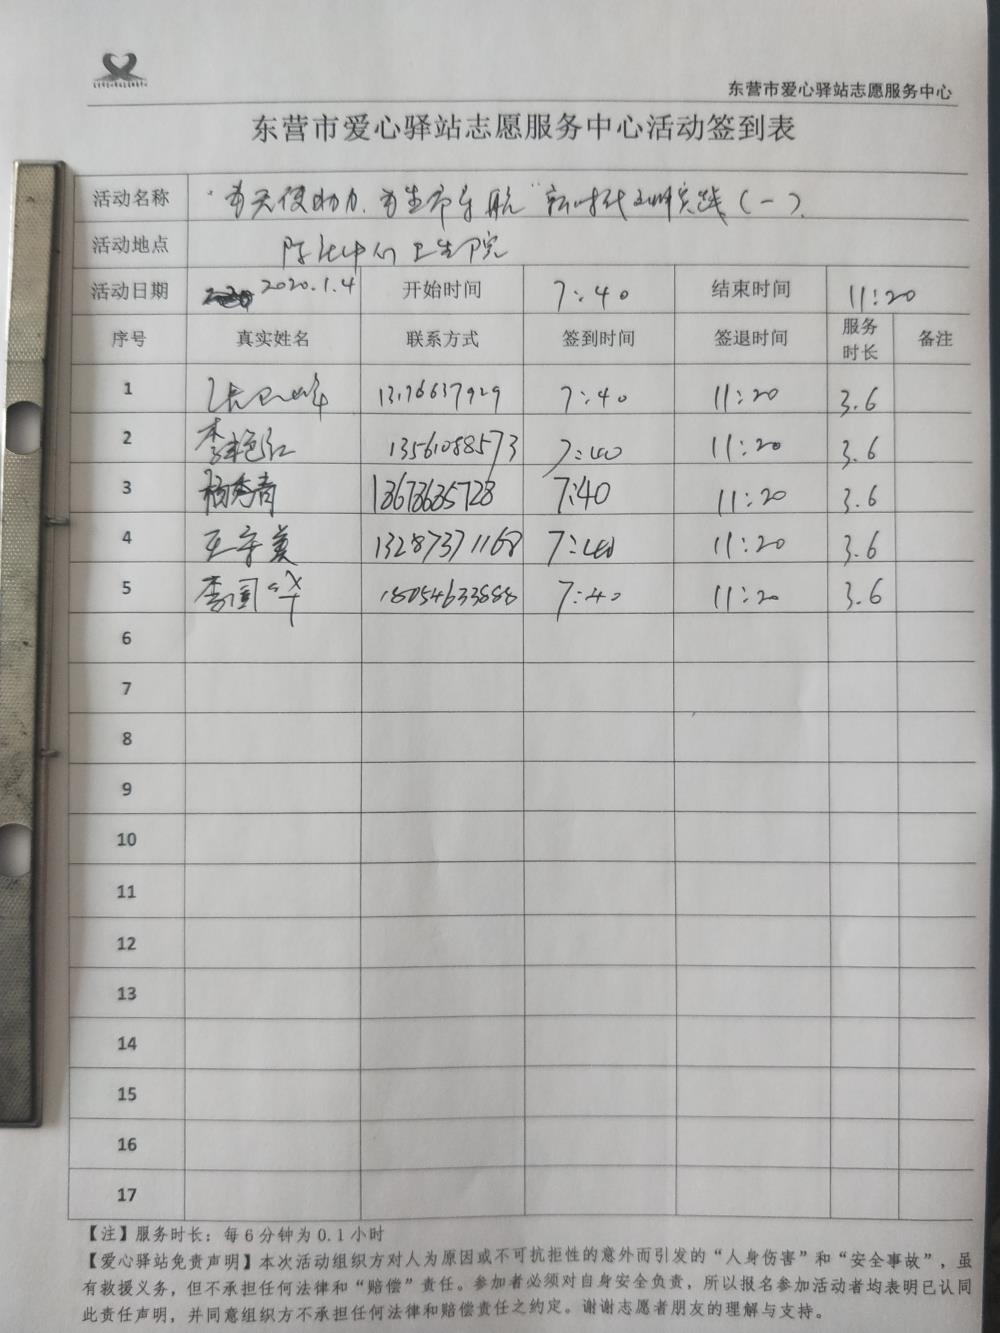 东营市爱心驿站志愿服务中心
东营市爱心驿站志愿服务中心活动签到表
活动名称 新时代文明实践(一)
活动地点 卫生院
活动日期 2020.1.4 开始时间 7:40 结束时间 11:20
序号 真实姓名 联系方式 签到时间 签退时间 服务时长 备注
1 7:40 11:20 3.6
2 李艳红 13561088573 7:40 11:20 3.6
3 杨秀青 18678635728 7:40 11:20 3.6
4 王守美 13287371168 7:40 11:20 3.6
5 李国华 18054633888 7:40 11:20 3.6
6
7
8
9
10
11
12
13
14
15
16
17
【注】服务时长：每6分钟为0.1小时
【爱心驿站免责声明】本次活动组织方对人为原因或不可抗拒性的意外而引发的“人身伤害”和“安全事故”，虽
有救援义务，但不承担任何法律和“赔偿”责任。参加者必须对自身安全负责，所以报名参加活动者均表明已认同
此责任声明，并同意组织方不承担任何法律和赔偿责任之约定。谢谢志愿者朋友的理解与支持。